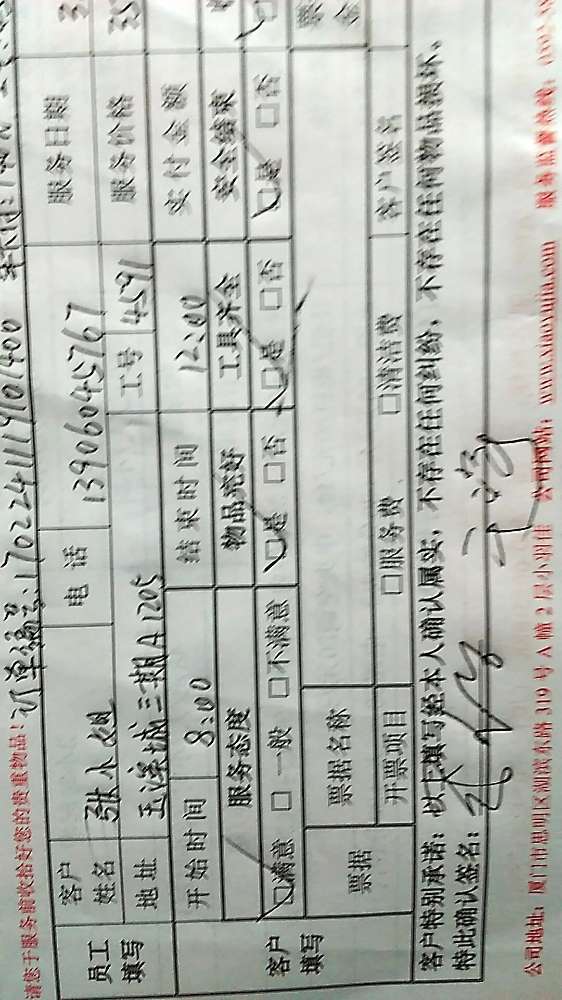 请您于服务前收拾好您的贵重物品！订单编号：17022411119101400
员工填写 客户姓名 张小姐 电话 13906045767 服务日期
地址 玉滨城三期A1205 工号 4591 服务价格 35
开始时间 8:00 结束时间 12:00 实付金额
客户填写 服务态度 物品完好 工具齐全 安全结束
☑满意 □一般 □不满意 ☑是 □否 ☑是 □否 ☑是 □否
票据 票据名称
开票项目 □服务费 □清洁费 客户签名
客户特别承诺：以上填写经本人确认属实，不存在任何纠纷，不存在任何物品损坏。
特此确认签名：
公司地址：厦门市思明区湖滨东路 319 号 A 幢 2 层小羽佳 公司网站：www.xiaoyujia.com 服务监督热线：0592-59